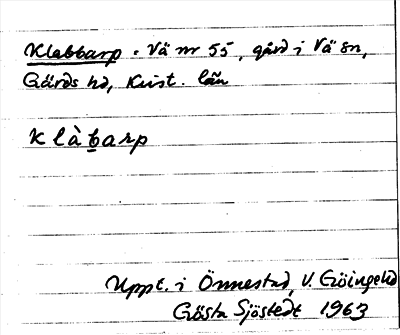 Klabbarp = Vä nr 55, gård i Vä sn,
Gärds hd, Krist. län
Klàbarp
Uppt. i Önnestad, V. Göinge hd
Gösta Sjöstedt 1963